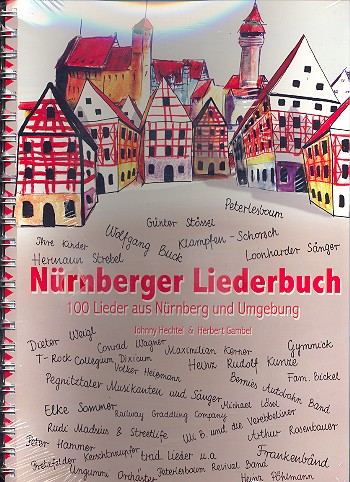 Peterlesboum
Günter Stössel
Wolfgang Buck
Klampfen-Schorsch
Ihre Kinder
Hermann Strebel
Loonharder Sänger
Nürnberger Liederbuch
100 Lieder aus Nürnberg und Umgebung
Johnny Hechtel & Herbert Gambel
Dieter Weigl
Conrad Wagner
Maximilian Kerner
Gymmick
T-Rock Collegium Dixicum
Heinz Rudolf Kunze
Volker Heißmann
Fam. Bickel
Pegnitztaler Musikanten und Sänger
Bernies Autobahn Band
Elke Sommer
Michael Lösel
Railway Graddling Company
Rudi Madsius & Streetlife
Uli B. und die Verebbeliner
Arthur Rosenbauer
Peter Hammer
Kerschtnzupfer
trad. Lieder u.a.
Frankenbänd
Ungummi Orchäster
Peterlesboum Revival Band
Heinz Pöhlmann